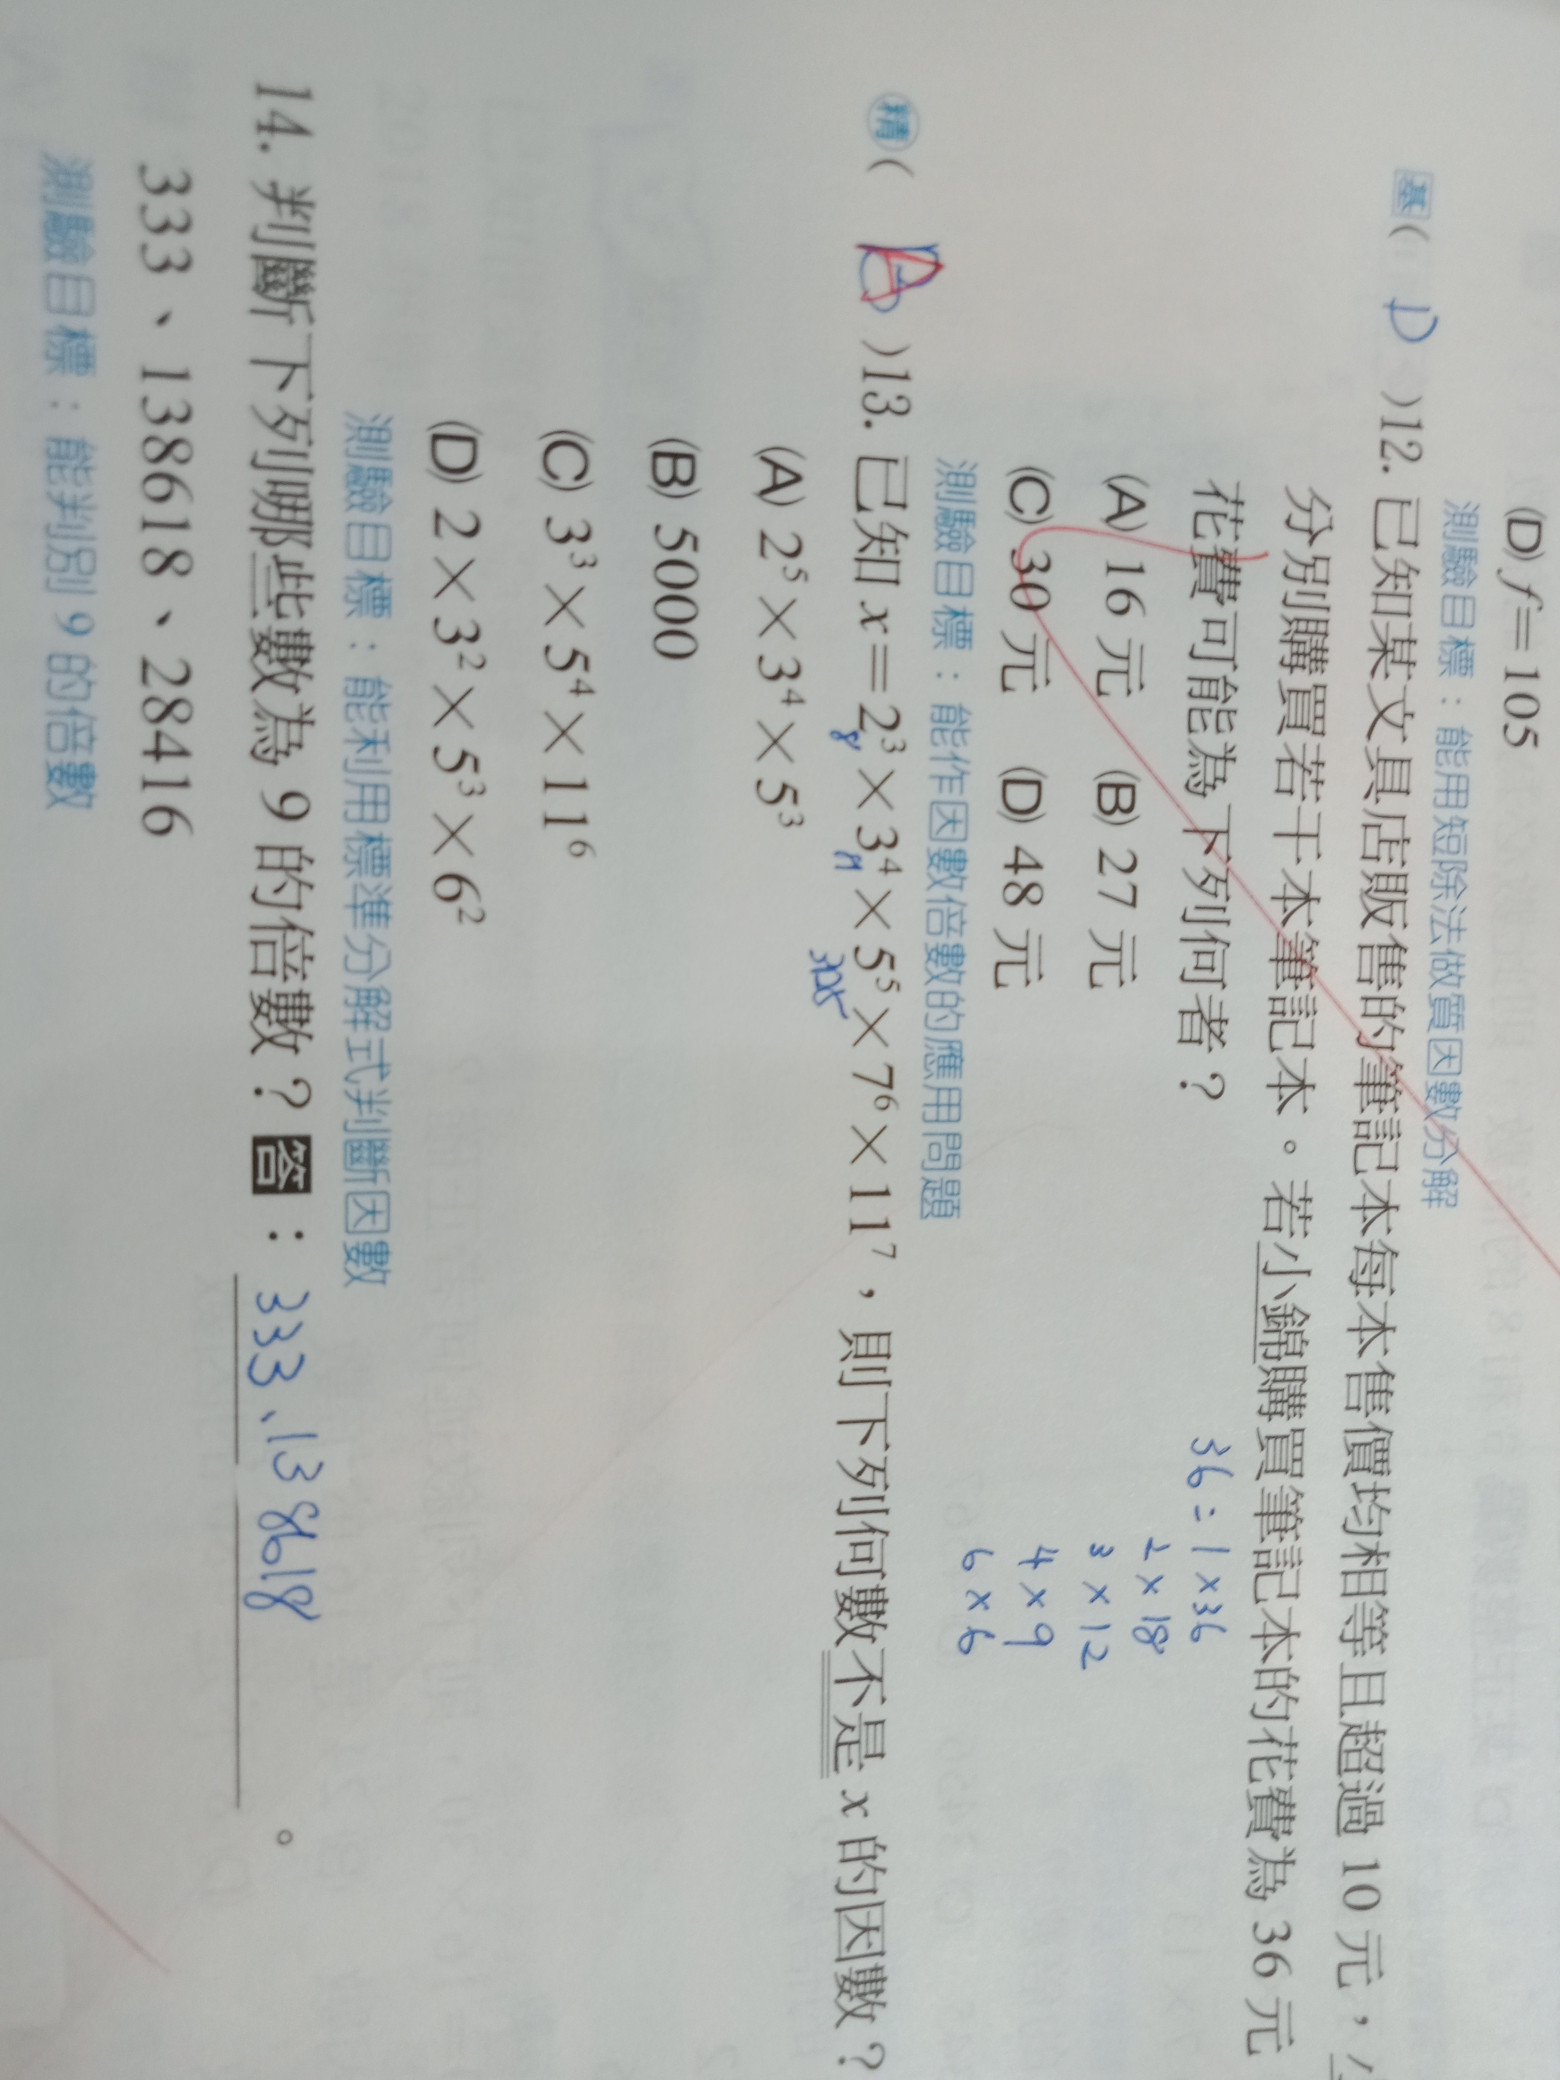 (D) f＝105
測驗目標：能用短除法做質因數分解
基( D )12. 已知某文具店販售的筆記本每本售價均相等且超過 10 元，
分別購買若干本筆記本。若小錦購買筆記本的花費為 36 元
花費可能為下列何者？
36 = 1 × 36
2 × 18
3 × 12
4 × 9
6 × 6
(A) 16 元 (B) 27 元
(C) 30 元 (D) 48 元
測驗目標：能作因數倍數的應用問題
精( A )13. 已知 x＝2³×3⁴×5⁵×7⁶×11⁷，則下列何數不是 x 的因數？
8
(A) 2⁵×3⁴×5³
(B) 5000
(C) 3³×5⁴×11⁶
(D) 2×3²×5³×6²
測驗目標：能利用標準分解式判斷因數
14. 判斷下列哪些數為 9 的倍數？答：333、138618。
333、138618、28416
測驗目標：能判別 9 的倍數